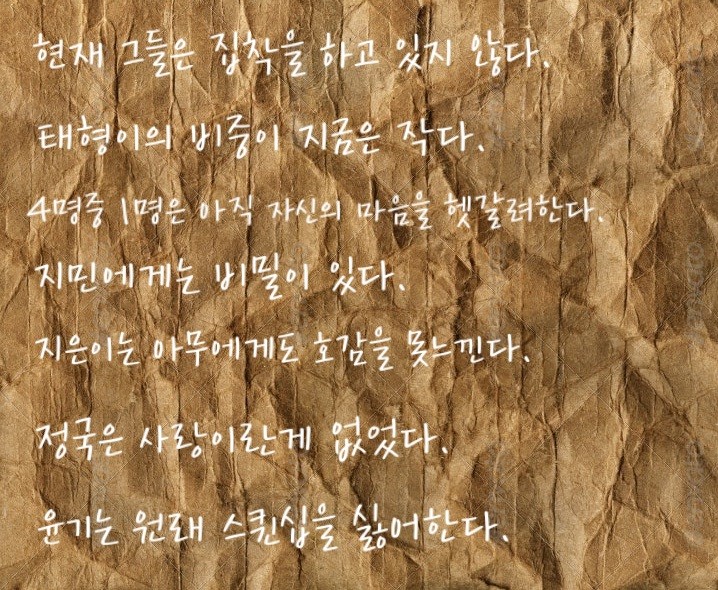 현재 그들은 집착을 하고 있지 않다.
태형이의 비중이 지금은 작다.
4명중 1명은 아직 자신의 마음을 헷갈려한다.
지민에게는 비밀이 있다.
지은이는 아무에게도 호감을 못느낀다.
정국은 사랑이란게 없었다.
윤기는 원래 스퀸십을 싫어한다.